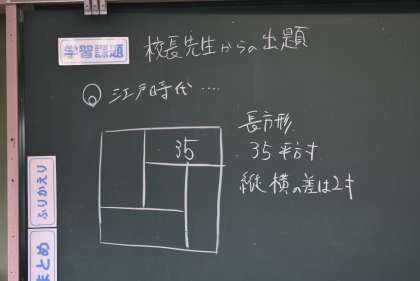 学習課題
校長先生からの出題
◎江戸時代‥‥
35
長方形
35平方寸
縦横の差は2寸
ふりかえり
まとめ